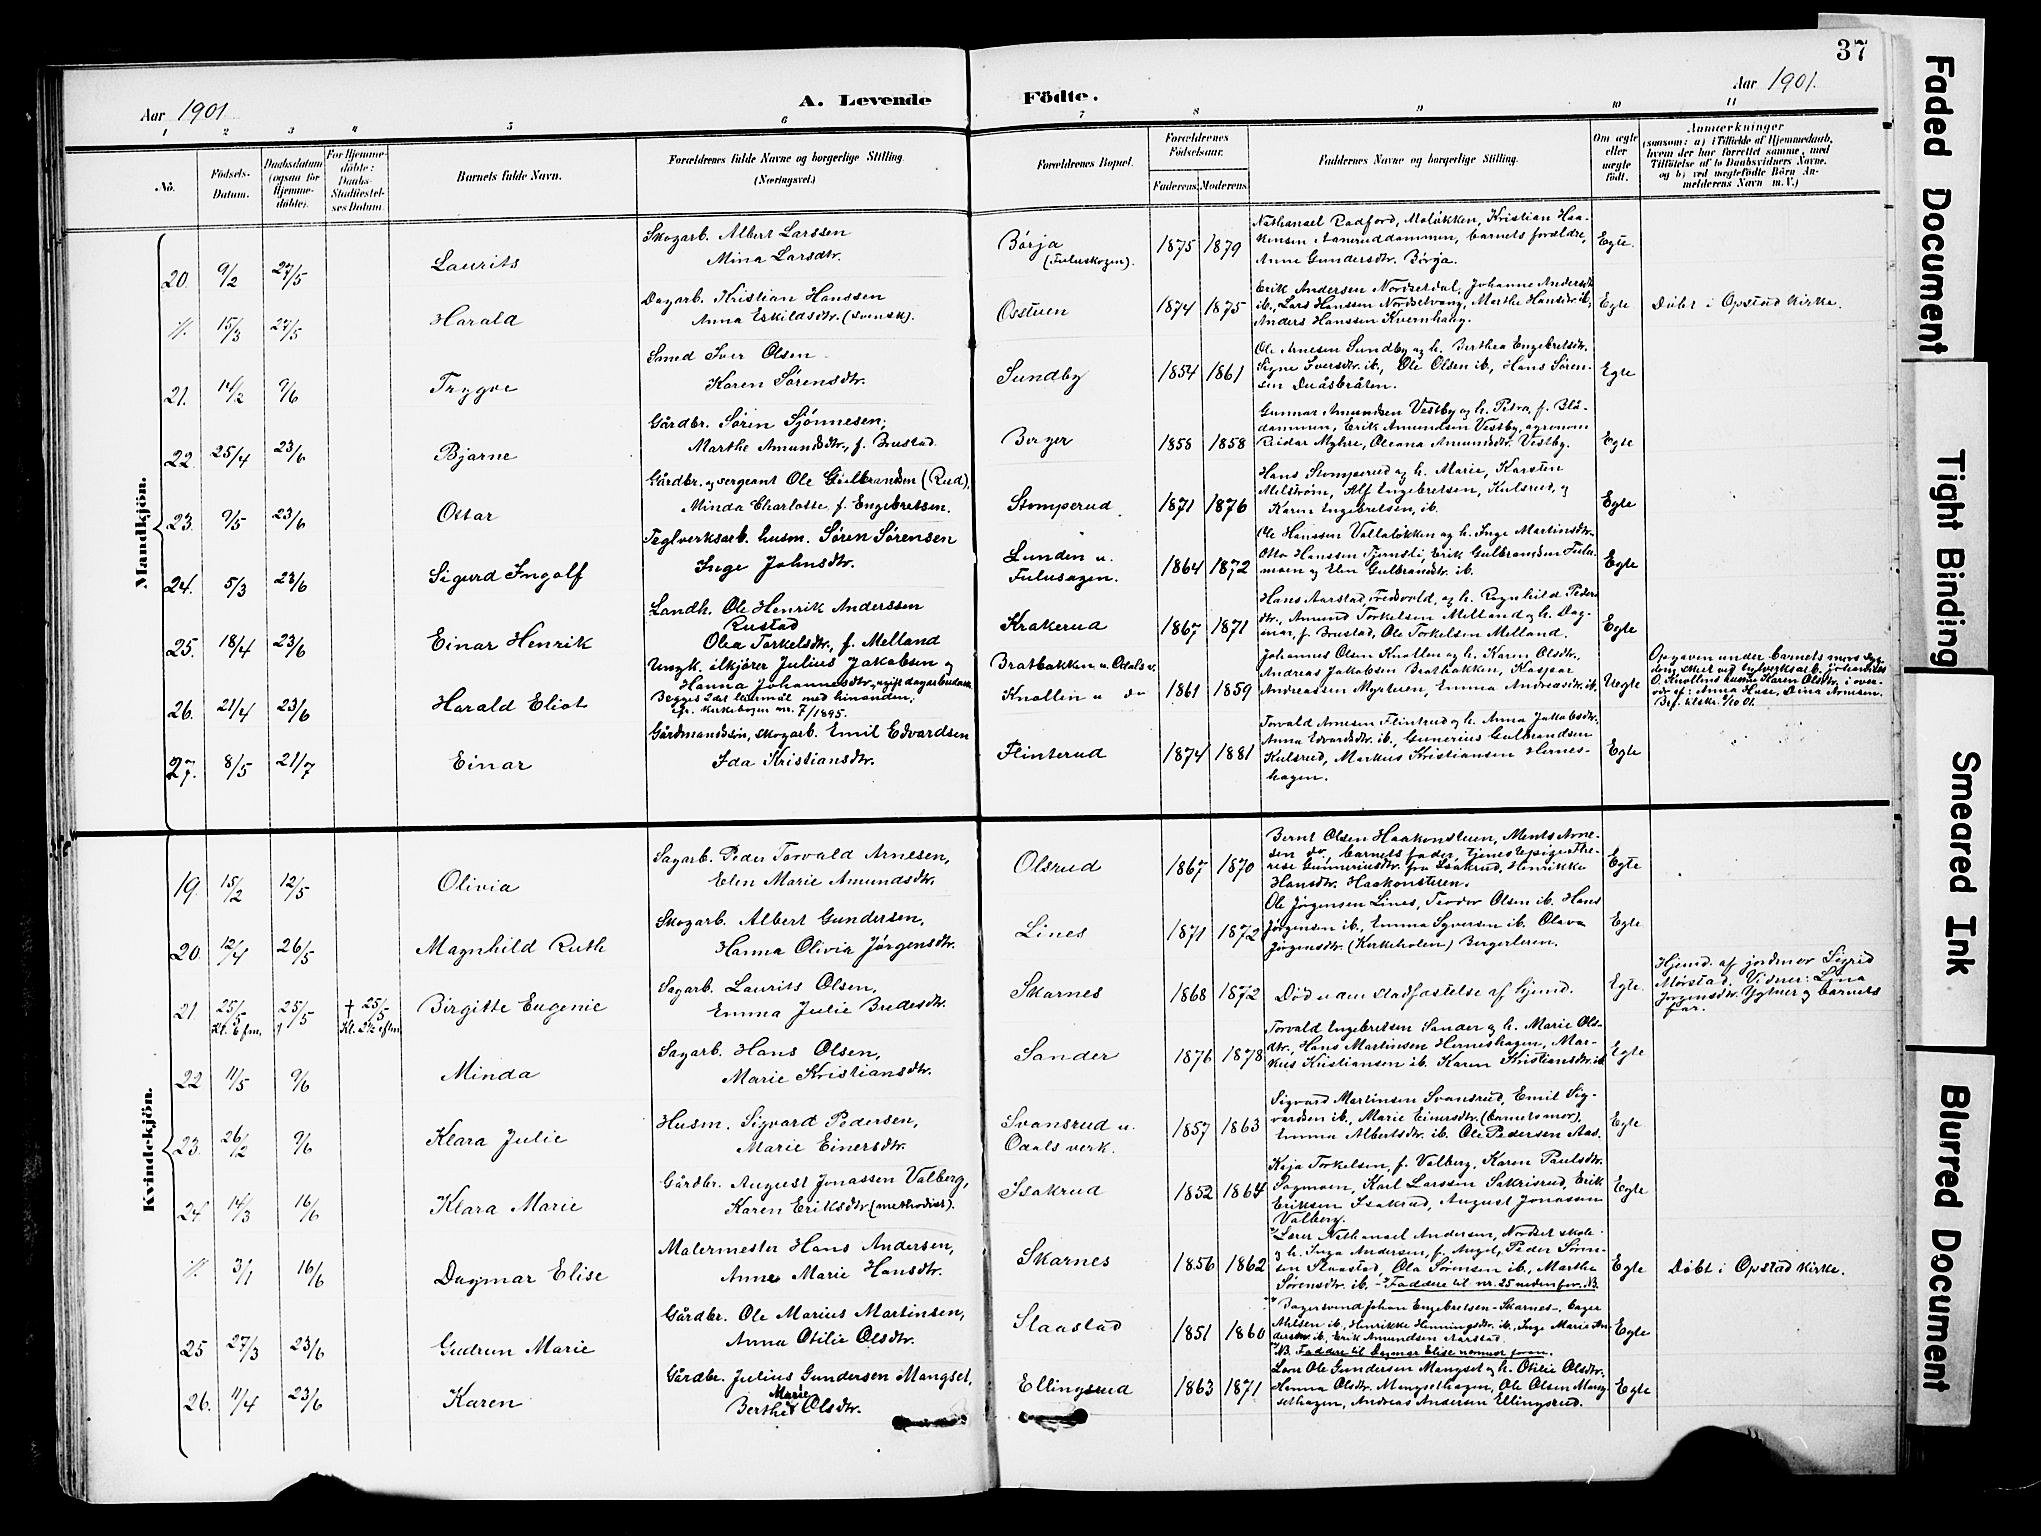 37
Aar 1901.
A. Levende
Födte.
Aar 1901.
1 2 3 4 5 6 7 8 9 10 11
No.
Födsels-
Datum.
Daabsdatum
(ogsaa for
Hjemme-
döbte).
For Hjemme-
döbte:
Daabs-
Stadfæstel-
ses Datum
Barnets fulde Navn.
Forældrenes fulde Navne og borgerlige Stilling
(Næringsvei.)
Forældrenes Bopæl.
Forældrenes
Födselsaar.
Faderens. Moderens.
Faddernes Navne og borgerlige Stilling.
Om ægte
eller
uægte
födt.
Anmærkninger
(saasom: a) i Tilfælde af Hjemmedaab,
hvem der har forrettet samme, med
Tilföielse af to Daabsvidners Navne.
og b) ved uægtefödte Börn An-
melderens Navn m. V.)
Mandkjön.
20. 9/2 27/5
Laurits
Skogarb. Albert Larssen
Mina Larsdtr.
Børja
(Fuluskogen).
1875 1879
Nathanael Radford, Moløkken, Kristian Haa-
kensen Aaneruddammen, barnets forældre,
Anne Gundersdtr. Børja.
Egte.
11. 15/3 27/5
Harald
Dagarb. Kristian Hanssen
Anna Eskildsdtr. (svensk).
Osstuen
1874 1875
Erik Andersen Nordsetdal, Johanne Andersdtr
ib., Lars Hanssen Nordsetvang, Marthe Hansdtr. ib,
Anders Hanssen Kvernhaug.
Egte
Døbt i Opstad Kirke.
21. 14/2 9/6
Trygve
Smed Iver Olsen
Karen Sørensdtr.
Sundby
1854 1861
Ole Arnesen Sundby og h. Berthea Engebretsdtr.
Signe Iversdtr. ib., Ole Olsen ib., Hans Søren-
sen Duåsbråten.
Egte
22. 25/4 23/6
Bjarne
Gårdbr. Søren Sjønnesen;
Marthe Amundsdtr., f. Brustad.
Berger
1858 1858
Gunnar Amundsen Vestby og h. Petra, f. Blå-
dammen, Erik Amundsen Vestby, agronom
Reidar Myhre, Oleana Amundsdtr. Vestby.
Egte
23. 9/5 23/6
Ottar
Gårdbr. og sergeant Ole Gulbrandsen (Rud),
Minda Charlotte f. Engebretsen.
Stomperud
1871 1876
Hans Stomperud og h. Marie, Karsten
Melstrøm, Alf Engebretsen, Kulsrud, og
Karen Engebretsen, ib.
Egte
24. 5/3 23/6
Sigurd Ingolf
Teglverksarb. husm. Søren Sørensen
Inge Johnsdtr.
Lunden u.
Fulusagen.
1864 1872
Ole Hanssen Valtaløkken og h. Inge Martinsdtr.
Otto Hanssen Tjernsli, Erik Gulbrandsen Fulu-
moen og Elen Gulbrandsdtr. ib.
Egte
25. 18/4 23/6
Einar Henrik
Landh. Ole Henrik Anderssen
Rustad
Olea Torkelsdtr., f. Melland
Krakerud
1867 1871
Hans Aarstad, Tredsvold, og h. Ragnhild Peders
dtr., Amund Torkelsen Melland og h. Dag-
mar, f. Brustad, Ole Torkelsen Melland.
Egte
26. 21/4 23/6
Harald Eliot
Ungk. ilkjører Julius Jakobsen og
Hanna Johannesdtr., ugift dagarbeiderske
Begges 2det leiermål med hinanden.
Cfr. kirkebogen nr. 7/1895.
Bratbakken u. Odals v.
Knollen u do
1861 1859
Johannes Olsen Knollen og h. Karen Olsdtr.,
Andreas Jakobsen Bratbakken, Kaspar
Andreassen Myrtuen, Emma Andreasdtr. ib.
Uegte
Opgaven under barnets mors
skeet ved
O. Knollens hustru Karen Olsdtr. i over-
vær af: Anna Huse, Dina Arnesen.
27. 8/5 21/7
Einar
Gårdmandssøn, skogarb. Emil Edvardsen
Ida Kristiansdtr.
Flinterud
1874 1881
Torvald Arnesen Flintrud og h. Anna Jakobsdtr.
Anna Edvardsdtr. ib., Gunerius Gulbrandsen
Kulsrud, Markus Kristiansen Hernes-
hagen.
Egte
Kvindekjön.
19. 15/2 12/5
Olivia
Sagarb. Peder Torvald Arnesen,
Elen Marie Amundsdtr.
Olsrud
1867 1870
Bernt Olsen Haakonstuen, Ments Arne-
sen do, barnets fader, tjenestepige The-
rese Gunneriusdtr. fra Isakrud, Henrikke
Hansdtr. Haakonstuen.
Egte
20. 12/4 26/5
Magnhild Ruth
Skogarb. Albert Gundersen,
Hanna Olivia Jørgensdtr.
Lines
1871 1872
Ole Jørgensen Lines, Teodor Olsen ib. Hans
Jørgensen ib., Emma Syversen ib. Olava
Jørgensdtr. (Kirkeholen) Bergerleren.
Egte
21. 25/5 25/5 † 25/5
Kl. 6 fm. Kl. 2½ eftm.
Birgitte Eugenie
Sagarb. Laurits Olsen,
Emma Julie Bredesdtr.
Skarnes
1868 1872
Død uden stadfæstelse af hjemd.
Egte.
Hjemd. af jordmor Sigrid
Mørstad. Vidner: Lina
Jørgensdtr. Ygtner og barnets
far.
22 11/5 9/6
Minda
Sagarb. Hans Olsen,
Marie Kristiansdtr.
Sander
1876 1878
Torvald Engebretsen Sander og h. Marie Ols-
dtr., Hans Martinsen Herneshagen, Mar-
kus Kristiansen ib. Karen Kristiansdtr. ib
Egte
23. 26/2 9/6
Klara Julie
Husm. Sigvard Pedersen,
Marie Einersdtr.
Svansrud u.
Odals verk.
1857 1863
Sigvard Martinsen Svansrud, Emil Sig-
vardsen ib., Marie Einersdtr. (barnets mor),
Emma Albertsdtr. ib. Ole Pedersen Aas.
Egte
24 14/3 16/6
Klara Marie
Gårdbr. August Jonassen Valberg,
Karen Eriksdtr. (methodist).
Isakrud
1852 1864
Kaja Torkelsen, f. Valberg, Karen Paulsdtr.
Sagmoen, Karl Larssen Sakrisrud, Erik
Eriksen Isakrud, August Jonassen
Valberg.
Egte
11. 3/1 16/6
Dagmar Elise
Malermester Hans Andersen,
Anne Marie Hansdtr.
Skarnes
1856 1862
Lærer Nathanael Andersen, Nordset skole
og h. Inga Andersen, f. Angel, Peder Sørn-
sen Slaastad, Ola Sørnsen ib., Marthe
Sørensdtr. ib. - Faddere til nr. 25 nedenfor. NB.
Egte
Døbt i Opstad Kirke.
25 27/3 23/6
Gudrun Marie
Gårdbr. Ole Marius Martinsen,
Anna Otilie Olsdtr.
Slaastad
1851 1860
Bagersvend Johan Engebretsen - Skarnes -, bager
Ahlsen ib., Henrikke Henningsdtr. ib., Inge Marie An
dersdtr. ib., Erik Amundsen Aarstad.
NB. Faddere til Dagmar Elise nummer foran.
Egte
26. 11/4 23/6
Karen
Gårdbr. Julius Gundersen Mangset,
Marie
Berthe Olsdtr.
Ellingsrud
1863 1871
Leon Ole Gundersen Mangset og h. Otilie Olsdtr.
Henna Olsdtr. Mangsethagen, Ole Olsen Mang
sethagen, Andreas Andersen Ellingsrud.
Egte
Faded Document
Tight Binding
Smeared Ink
Blurred Document